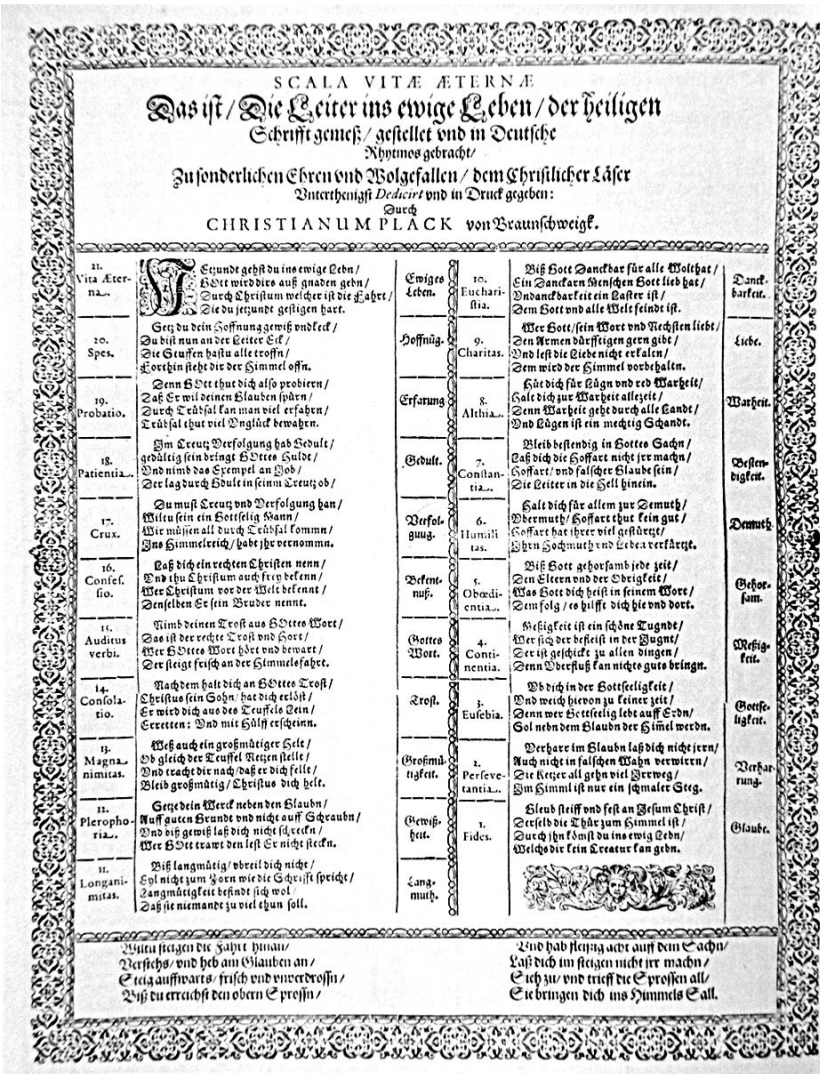 SCALA VITÆ ÆTERNÆ
Das ist/ Die Leiter ins ewige Leben/ der heiligen
Schrifft gemeß/ gestellet vnd in Deutsche
Rhytmos gebracht/
Zu sonderlichen Ehren vnd Wolgefallen/ dem Christlicher Läser
Vnterthenigst Dedicirt vnd in Druck gegeben:
Durch
CHRISTIANUM PLACK von Braunschweigk.
21.
Vita Æter-
na.
JEtzundt gehst du ins ewige Lebn/
GOtt wird dirs auß gnaden gebn/
Durch Christum welcher ist die Fahrt/
Die du jetzunde gestigen hart.
Ewiges
Leben.
20.
Spes.
Setz du dein Hoffnung gewiß vnd keck/
Du bist nun an der Leiter Eck/
Die Stuffen hastu alle troffn/
Forthin steht dir der Himmel offn.
Hoffnūg.
19.
Probatio.
Denn GOtt thut dich also probiern/
Daß Er wil deinen Glauben spürn/
Durch Trübsal kan man viel erfahrn/
Trübsal thut viel Vnglück bewahrn.
Erfarung
18.
Patientia.
Im Creutz Verfolgung hab Gedult/
gedültig sein bringt GOttes Huldt/
Vnd nimb das Exempel an Job/
Der lag durch Gdult in seinm Creutz ob/
Gedult.
17.
Crux.
Du must Creutz vnd Verfolgung han/
Wiltu sein ein Gottselig Mann/
Wir müssen all durch Trübsal kommn/
Ins Himmelreich/ habt jhr vernommn.
Verfol-
guug.
16.
Confes-
sio.
Laß dich ein rechten Christen nenn/
Vnd thu Christum auch frey bekenn/
Wer Christum vor der Welt bekennt/
Denselben Er sein Bruder nennt.
Bekent-
nuß.
15.
Auditus
verbi.
Nimb deinen Trost aus GOttes Wort/
Das ist der rechte Trost vnd Hort/
Wer GOttes Wort hört vnd bewart/
Der steigt frisch an der Himmelsfahrt.
Gottes
Wort.
14.
Consola-
tio.
Nachdem halt dich an GOttes Trost/
Christus sein Sohn/ hat dich erlöst/
Er wird dich aus des Teuffels Pein/
Erretten: Vnd mit Hülff erscheinn.
Trost.
13.
Magna-
nimitas.
Weß auch ein großmütiger Helt/
Ob gleich der Teuffel Netzen stelle/
Vnd tracht dir nach/ daß er dich fellt/
Bleib großmütig/ Christus dich helt.
Großmü-
tigkeit.
12.
Pleropho-
ria.
Setze dein Werck neben den Glaubn/
Auff guten Grundt vnd nicht auff Schraubn/
Vnd diß gewiß laß dich nicht schreckn/
Wer GOtt trawt den lest Er nicht steckn.
Gewiß-
heit.
11.
Longani-
mitas.
Biß langmütig/ vbreil dich nicht/
Eyl nicht zum Zorn wie die Schrifft spricht/
Langmütigkeit befindt sich wol/
Daß sie niemandt zu viel thun soll.
Lang-
muth.
10.
Euchari-
stia.
Biß Gott Danckbar für alle Wolthat/
Ein Danckarn Menschen Gott lieb hat/
Vndanckbarkeit ein Laster ist/
Dem Gott vnd alle Welt feindt ist.
Danck-
barkeit.
9.
Charitas.
Wer Gott/ sein Wort vnd Nechsten liebt/
Den Armen dürfftigen gern gibt/
Vnd lest die Liebe nicht erkalen/
Dem wird der Himmel vorbehalten.
Liebe.
8.
Althia.
Hüt dich für Lügn vnd red Warheit/
Halt dich zur Warheit allezeit/
Denn Warheit geht durch alle Landt/
Vnd Lügen ist ein mechtig Schandt.
Warheit.
7.
Constan-
tia.
Bleib bestendig in Gottes Sachn/
Laß dich die Hoffart nicht jrr machn/
Hoffart/ vnd falscher Glaube sein/
Die Leiter in die Hell hinein.
Besten-
digkeit.
6.
Humili
tas.
Halt dich für allem zur Demuth/
Vbermuth/ Hoffart thut kein gut/
Hoffart hat jhrer viel gestürtzt/
Ihrn Hochmuth vnd Leben verkürtzt.
Demuth
5.
Obœdi-
entia.
Biß Gott gehorsamb jede zeit/
Den Eltern vnd der Obrigkeit/
Was Gott dich heist in seinem Wort/
Dem folg/ es hilfft dich hie vnd dort.
Gehor-
sam.
4.
Conti-
nentia.
Meßigkeit ist ein schöne Tugndt/
Wer sich der befleist in der Jugnt/
Der ist geschickt zu allen dingen/
Denn Vberfluß kan nichts guts bringn.
Meßig-
keit.
3.
Eusebia.
Vb dich in der Gottseeligkeit/
Vnd weich hievon zu keiner zeit/
Denn wer Gottselig lebt auff Erdn/
Sol nebn dem Glaubn der Himel werdn.
Gottse-
ligkeit.
2.
Perseve-
rantia.
Verharr im Glaubn laß dich nicht jrrn/
Auch nicht in falschen Wahn verwirrn/
Die Ketzer all gehn viel Irrweg/
Im Himml ist nur ein schmaler Steg.
Verhar-
rung.
1.
Fides.
Gleub steiff vnd fest an Jesum Christ/
Derselb die Thür zum Himmel ist/
Durch jhn kömst du ins ewig Lebn/
Welchs dir kein Creatur kan gebn.
Glaube.
Wiltu steigen die Fahrt hinan/
Verstehs/ vnd heb am Glauben an/
Steig auffwarts/ frisch vnd vnverdrossn/
Biß du erreichst den obern Sprossn/
Vnd hab fleissig acht auff dem Sachn/
Laß dich im steigen nicht jrr machn/
Sich zu/ vnd trieff die Sprossen all/
Sie bringen dich ins Himmels Sall.